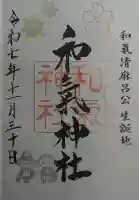 和氣清麻呂公 生誕地
和氣神社
令和七年十一月三十日